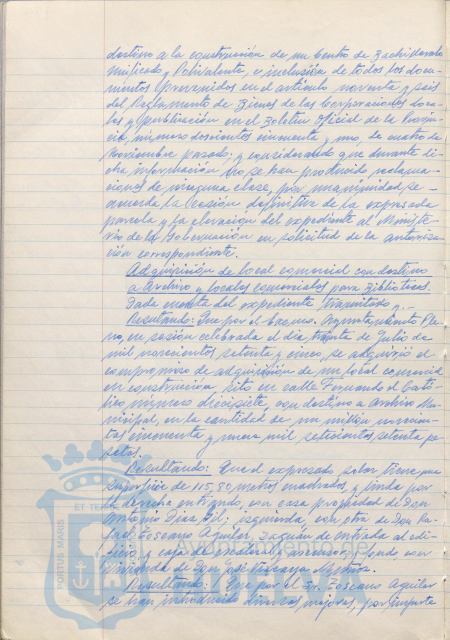 destino a la construcción de un Centro de Bachillerato
Unificado y Polivalente, e inclusión de todos los docu-
mentos prevenidos en el artículo noventa y seis
del Reglamento de Bienes de las Corporaciones Loca-
les y publicación en el Boletín Oficial de la Provin-
cia, número doscientos cincuenta y uno, de cuatro de
Noviembre pasado; y considerando que durante di-
cha información no se han producido reclama-
ciones de ninguna clase, por unanimidad se
acuerda la Cesión definitiva de la expresada
parcela y la elevación del expediente al Ministe-
rio de la Gobernación en solicitud de la autoriza-
ción correspondiente.
Adquisición de local comercial con destino
a Archivo y locales comerciales para Bibliotecas.
Dada cuenta del expediente tramitado y.-
Resultando: Que por el Excmo. Ayuntamiento Ple-
no, en sesión celebrada el día treinta de Julio de
mil novecientos setenta y cinco, se adquirió el
compromiso de adquisición de un local comercial
en construcción, sito en calle Fernando el Cató-
lico, número diecisiete, con destino a Archivo Mu-
nicipal, en la cantidad de un millón novecien-
tas cincuenta y nueve mil setecientas setenta pe-
setas.
Resultando: Que el expresado solar tiene una
superficie de 115,80 metros cuadrados, y linda por
la derecha entrando, con casa propiedad de Don
Antonio Díaz Gil; izquierda, con otra de Don Ra-
fael Toscano Aguilar, zaguán de entrada al edi-
ficio y caja de escalera y ascensor; y fondo con
vivienda de Don José Vizcaya
Resultando: Que por el Sr. Toscano Aguilar
se han introducido diversas mejoras, por importe
ET TERRA
PORTUS MARIS